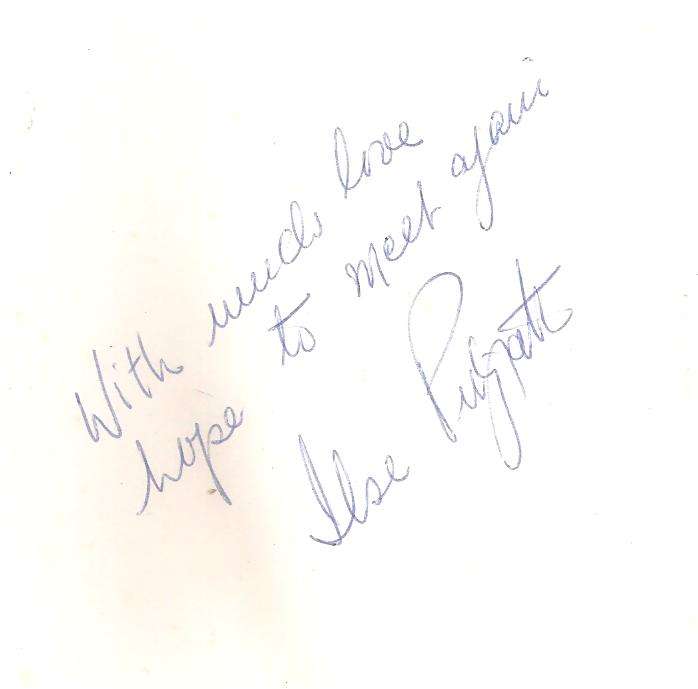 With much love
hope to meet again
Ilse